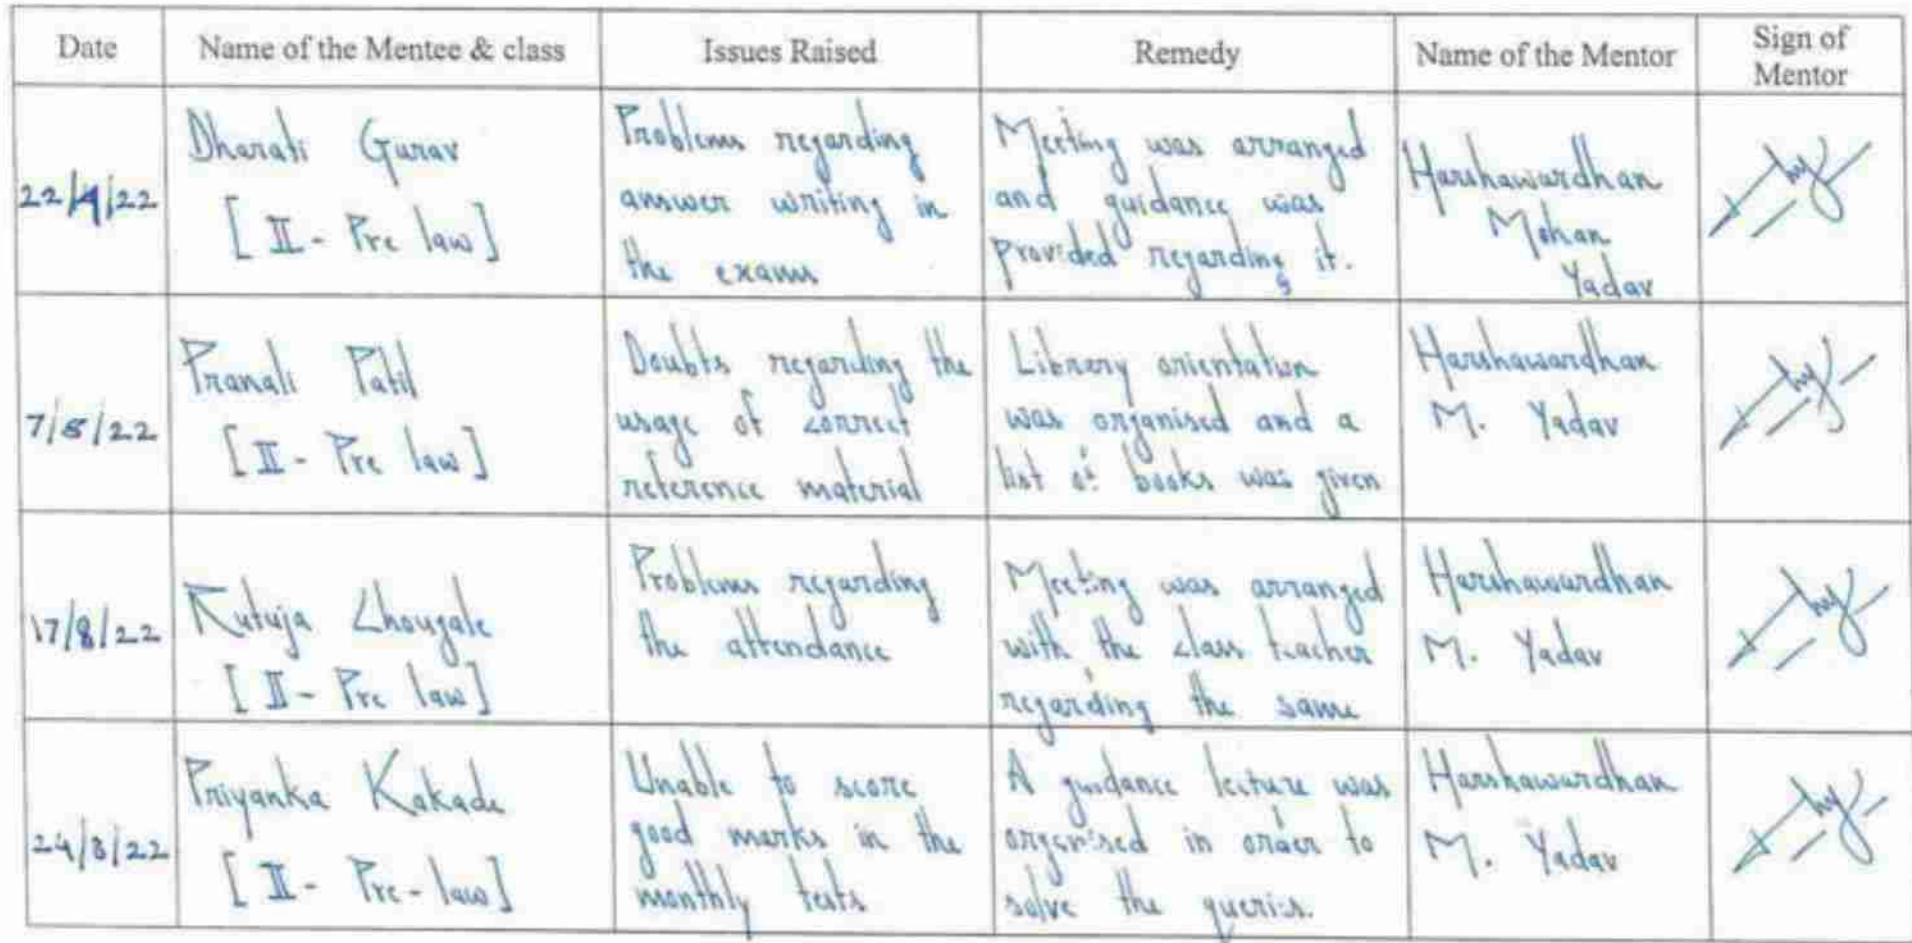 Date Name of the Mentee & class Issues Raised Remedy Name of the Mentor Sign of Mentor
22/4/22
Dharati Gurav
[II - Pre law]
Problems regarding
answer writing in
the exams
Meeting was arranged
and guidance was
provided regarding it.
Harshawardhan
Mohan
Yadav
7/5/22
Pranali Patil
[II - Pre law]
Doubts regarding the
usage of correct
reference material
Library orientation
was organised and a
list of books was given
Harshawardhan
M. Yadav
17/8/22
Rutuja Chougale
[II - Pre law]
Problems regarding
the attendance
Meeting was arranged
with the class teacher
regarding the same
Harshawardhan
M. Yadav
24/8/22
Priyanka Kakade
[II - Pre-law]
Unable to score
good marks in the
monthly tests
A guidance lecture was
organised in order to
solve the queries.
Harshawardhan
M. Yadav